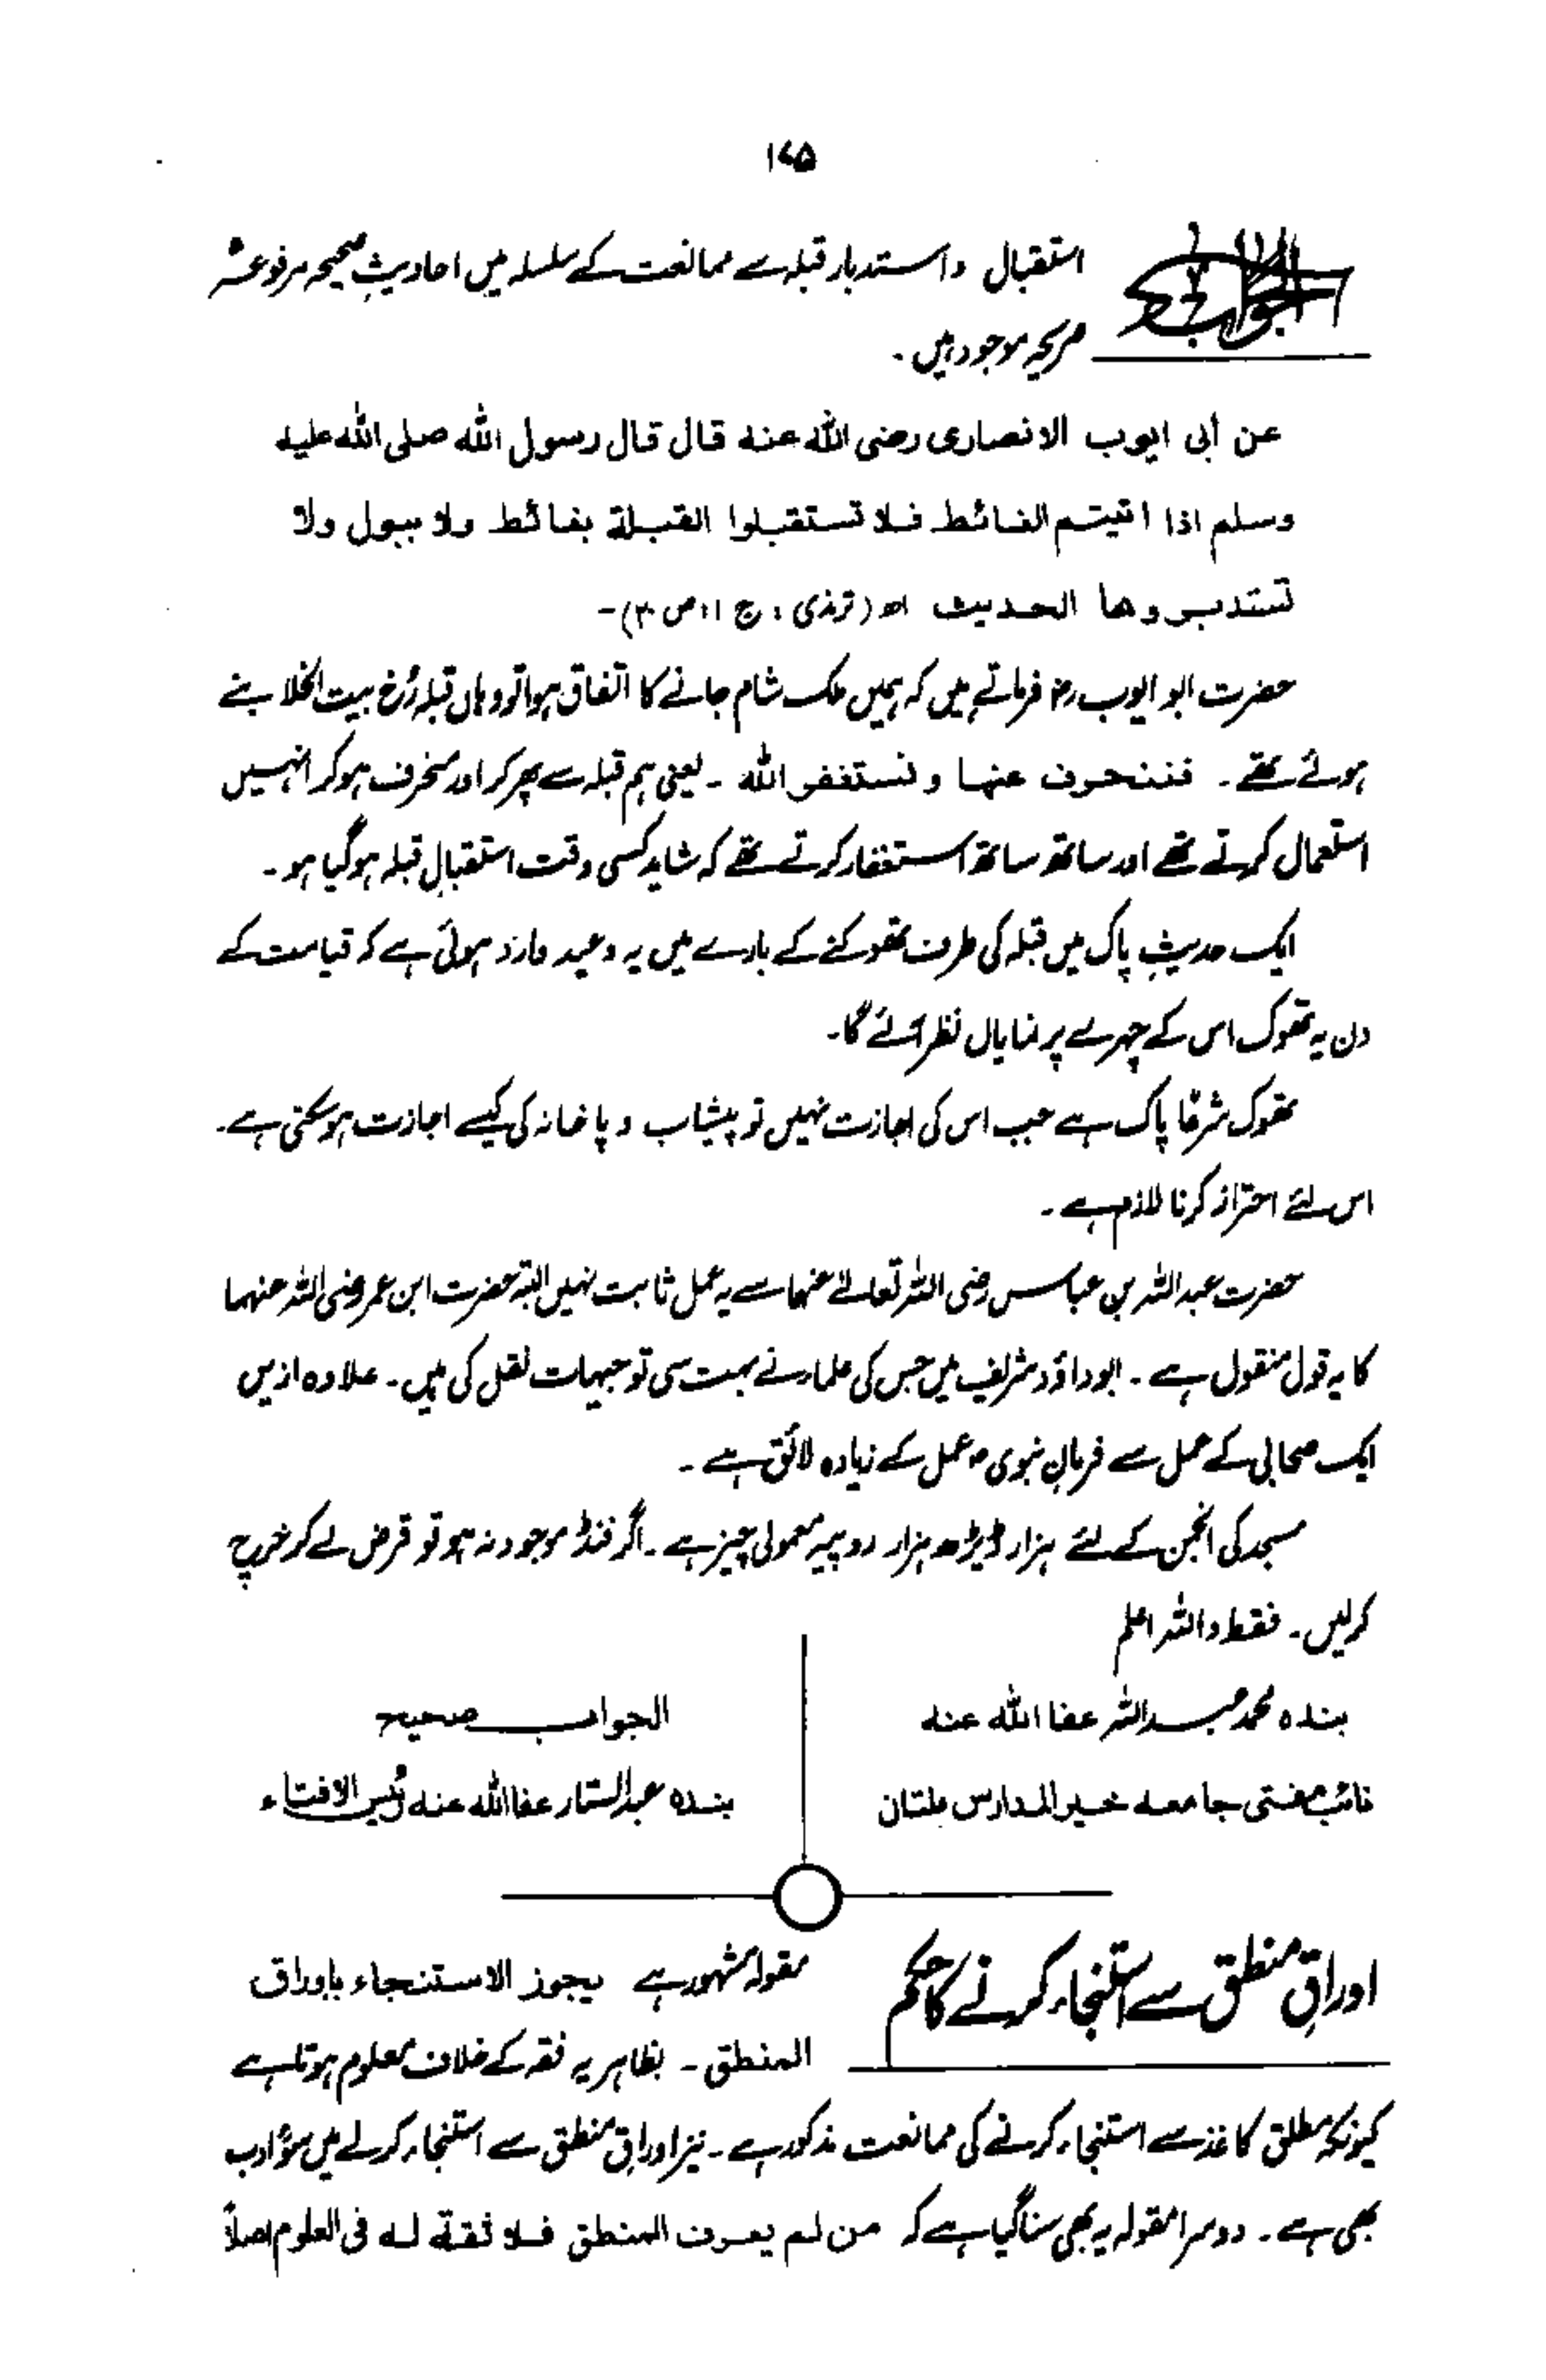 ۱۷۵
الجواب استقبال و استدبار قبلہ سے ممانعت کے سلسلہ میں احادیثِ صحیحہ مرفوعہ
صریحہ موجود ہیں۔
عن أبی ایوب الانصاری رضی اللہ عنہ قال قال رسول اللہ صلی اللہ علیہ
وسلم اذا اتیتم الغائط فلا تستقبلوا القبلة بغائط ولا ببول ولا
تستدبروها الحدیث اھ (ترمذی، ج ۱، ص ۳)۔
حضرت ابو ایوب رض فرماتے ہیں کہ ہمیں ملک شام جانے کا اتفاق ہوا تو وہاں قبلہ رُخ بیت الخلا بنے
ہوئے تھے۔ فننحرف عنہا و نستغفر اللہ ۔ یعنی ہم قبلہ سے پھر کر اور منحرف ہو کر انہیں
استعمال کرتے تھے اور ساتھ ساتھ استغفار کرتے تھے کہ شاید کسی وقت استقبالِ قبلہ ہو گیا ہو۔
ایک حدیثِ پاک میں قبلہ کی طرف تھوکنے کے بارے میں یہ وعید وارد ہوئی ہے کہ قیامت کے
دن یہ تھوک اس کے چہرے پر نمایاں نظر آئے گا۔
تھوک شرعًا پاک ہے جب اس کی اجازت نہیں تو پیشاب و پاخانہ کی کیسے اجازت ہو سکتی ہے۔
اس لئے احتراز کرنا لازم ہے۔
حضرت عبد اللہ بن عباس رضی اللہ تعالےٰ عنہما سے یہ عمل ثابت نہیں البتہ حضرت ابن عمر رضی اللہ عنہما
کا یہ قول منقول ہے۔ ابو داؤد شریف میں جس کی علماء نے بہت سی توجیہات نقل کی ہیں۔ علاوہ ازیں
ایک صحابی کے عمل سے فرمانِ نبوی ﷺ عمل کے زیادہ لائق ہے۔
مسجد کی انجمن کے لئے ہزار ڈیڑھ ہزار روپیہ معمولی چیز ہے۔ اگر فنڈ موجود نہ ہو تو قرض لے کر خرچ
کر لیں۔ فقط واللہ اعلم
بندہ محمد عبد اللہ عفا اللہ عنہ
نائب مفتی جامعہ خیر المدارس ملتان
الجواب صحیح
بندہ عبد الستار عفا اللہ عنہ رئیس الافتاء
اوراقِ منطق سے استنجاء کرنے کا حکم مقولہ مشہور ہے یجوز الاستنجاء باوراق
المنطق۔ بظاہر یہ فقہ کے خلاف معلوم ہوتا ہے
کیونکہ مطلق کاغذ سے استنجاء کرنے کی ممانعت مذکور ہے۔ نیز اوراقِ منطق سے استنجاء کرنے میں سوءِ ادب
بھی ہے۔ دوسرا مقولہ یہ بھی سنا گیا ہے کہ من لم یعرف المنطق فلا ثقة لہ فی العلوم اصلاً